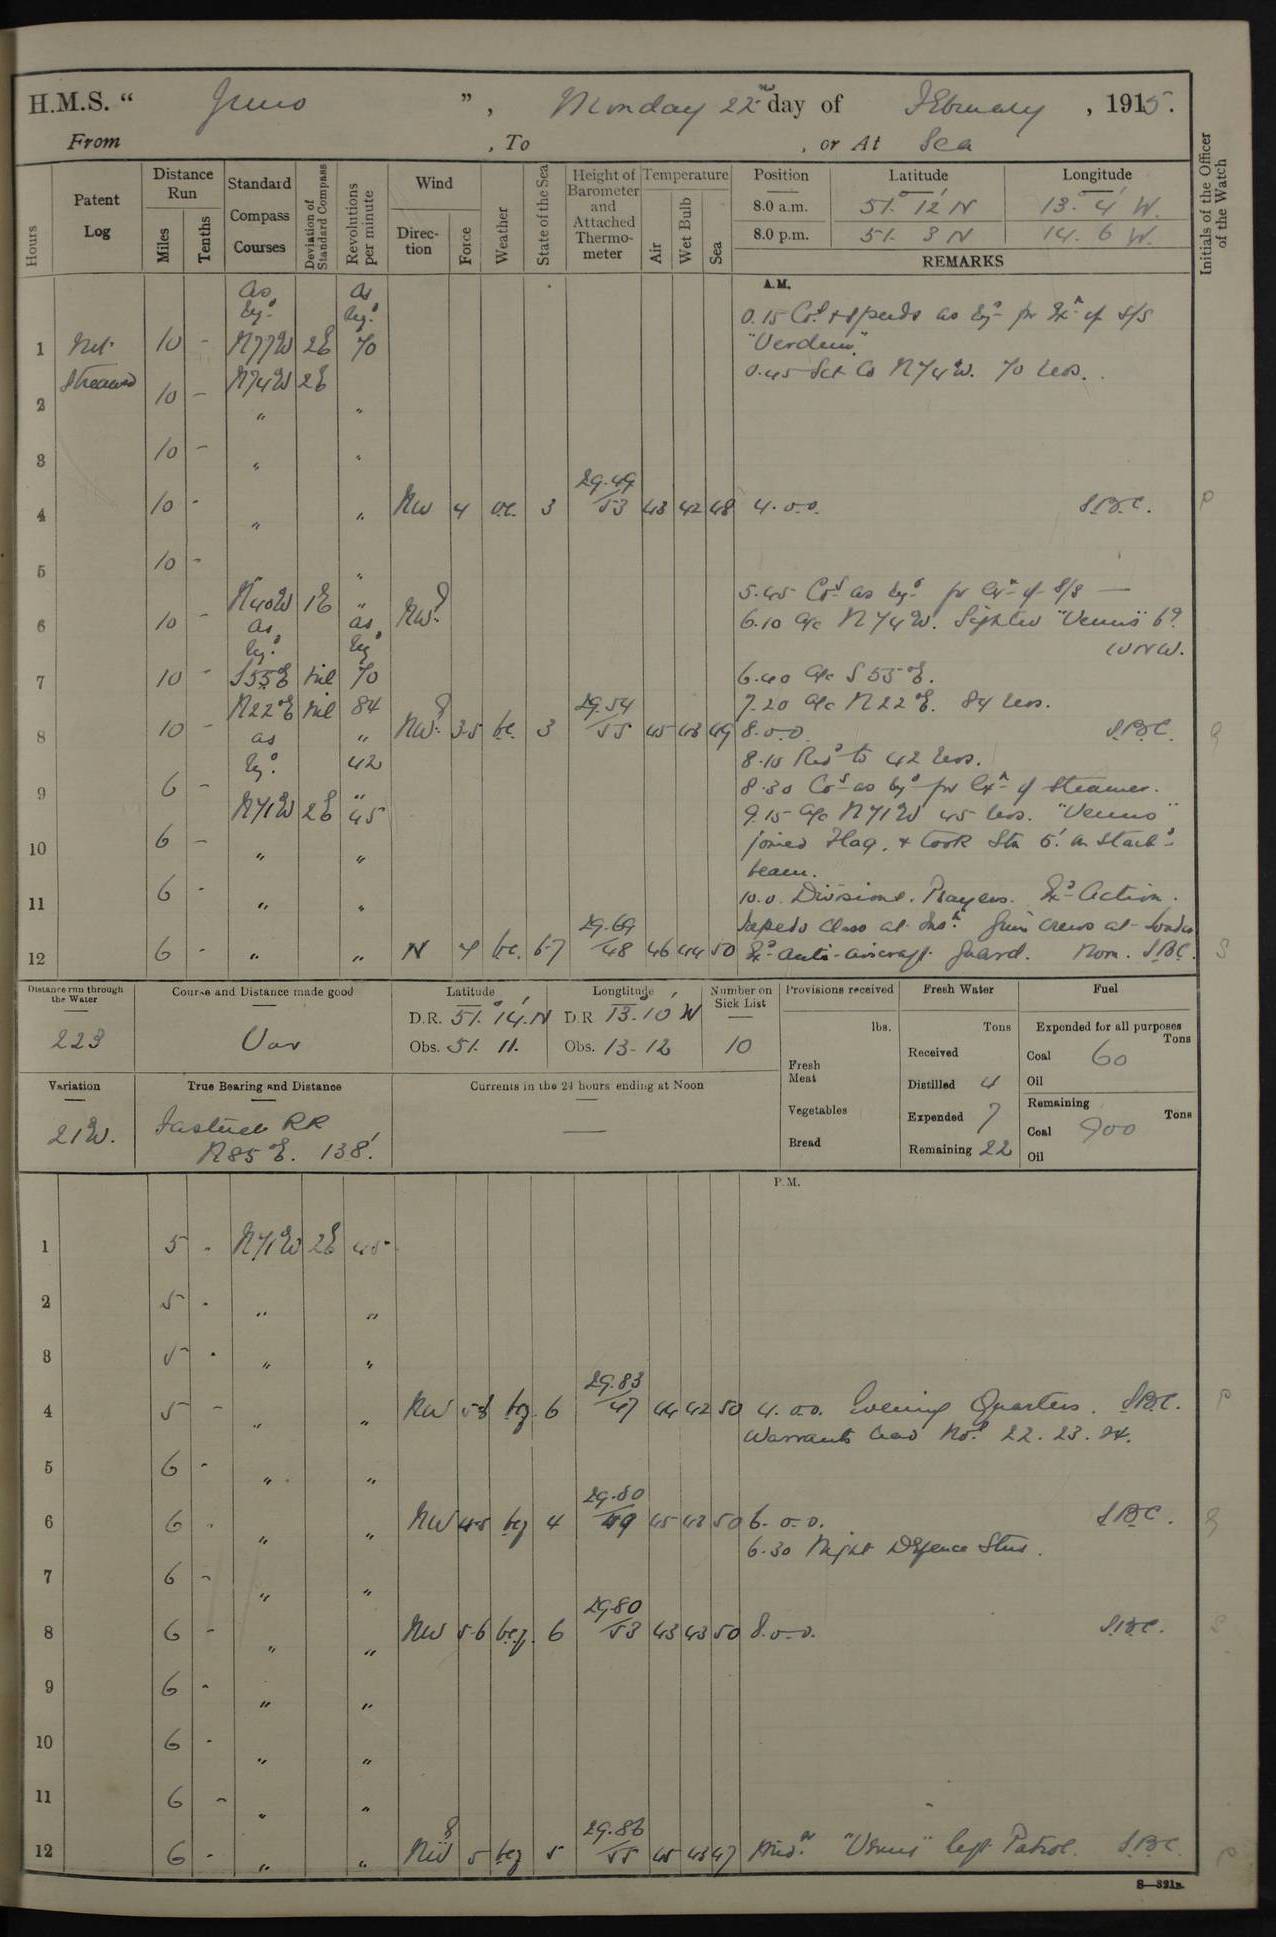 H.M.S. “ Juno ”, Monday 22nd day of February, 1915.
From , To , or At Sea
Hours
Patent Log
Distance Run
Miles
Tenths
Standard Compass Courses
Deviation of Standard Compass
Revolutions per minute
Wind
Direction
Force
Weather
State of the Sea
Height of Barometer and Attached Thermometer
Temperature
Air
Wet Bulb
Sea
Position
Latitude
Longitude
8.0 a.m. 51° 12' N 13° 4' W.
8.0 p.m. 51. 3 N 14. 6 W.
REMARKS
Initials of the Officer of the Watch
A.M.
as as
reqd. reqd.
0.15 Cos & speeds as reqd for Exn of S/S
1 Not 10 - N77W 2E 70 "Verdun".
Streamed N74W 2E 0.45 Set Co N74W. 70 revs.
2 10 - " "
3 10 - " "
29.49
4 10 - " " NW 4 oc. 3 53 43 42 48 4.0.0. SBC.
5 10 - "
N40W 1E " 5.45 Cos as reqd for Exn of S/S —
6 10 - as as NW. 6.10 a/c N74W. Sighted "Venus" 6'
reqd. reqd WNW.
7 10 - S55E nil 70 6.40 a/c S55°E.
N22E nil 84 29.54 7.20 a/c N22E. 84 revs.
8 10 - as " NW. 3.5 bc. 3 55 45 43 49 8.0.0. SBC.
reqd. 42 8.10 Redd to 42 revs.
9 6 - " 8.30 Cos as reqd for Exn of Steamer.
N71W 2E 45 9.15 a/c N71W 45 revs. "Venus"
10 6 - " " joined Flag, & took Stn 5' on Starbd
beam.
11 6 - " " 10.0. Divisions. Prayers. Exd Action.
29.69 Torpedo Class at Insn. Guns crews at loader
12 6 - " " N 4 bc. 6-7 48 46 44 50 Exd anti-aircraft guard. Noon. SBC.
Distance run through the Water
223
Course and Distance made good
Var
Latitude
D.R. 51° 14' N
Obs. 51. 11.
Longtitude
D.R 13° 10' W
Obs. 13-12
Number on Sick List
10
Provisions received
lbs.
Fresh Meat
Vegetables
Bread
Fresh Water
Tons
Received
Distilled 4
Expended 7
Remaining 22
Fuel
Expended for all purposes
Tons
Coal 60
Oil
Remaining
Tons
Coal 900
Oil
Variation
21W.
True Bearing and Distance
Fastnet RR
N85°E. 138'.
Currents in the 24 hours ending at Noon
—
P.M.
1 5 - N71W 2E 45
2 5 - " "
3 5 - " "
29.83
4 5 - " " NW 5-3 bcq 6 47 44 42 50 4.0.0. Evening Quarters. SBC.
Warrants read Nos 22. 23. 24.
5 6 - " "
29.80
6 6 - " " NW 4-5 bcq 4 49 45 43 50 6.0.0. SBC.
6.30 Night Defence Stns.
7 6 - " "
29.80
8 6 - " " NW 5-6 bcq. 6 53 43 43 50 8.0.0. SBC.
9 6 - " "
10 6 - " "
11 6 - " "
29.86
12 6 - " " NW 5 bcq 5 55 45 43 47 Midt "Venus" left Patrol. SBC.
S—321B.